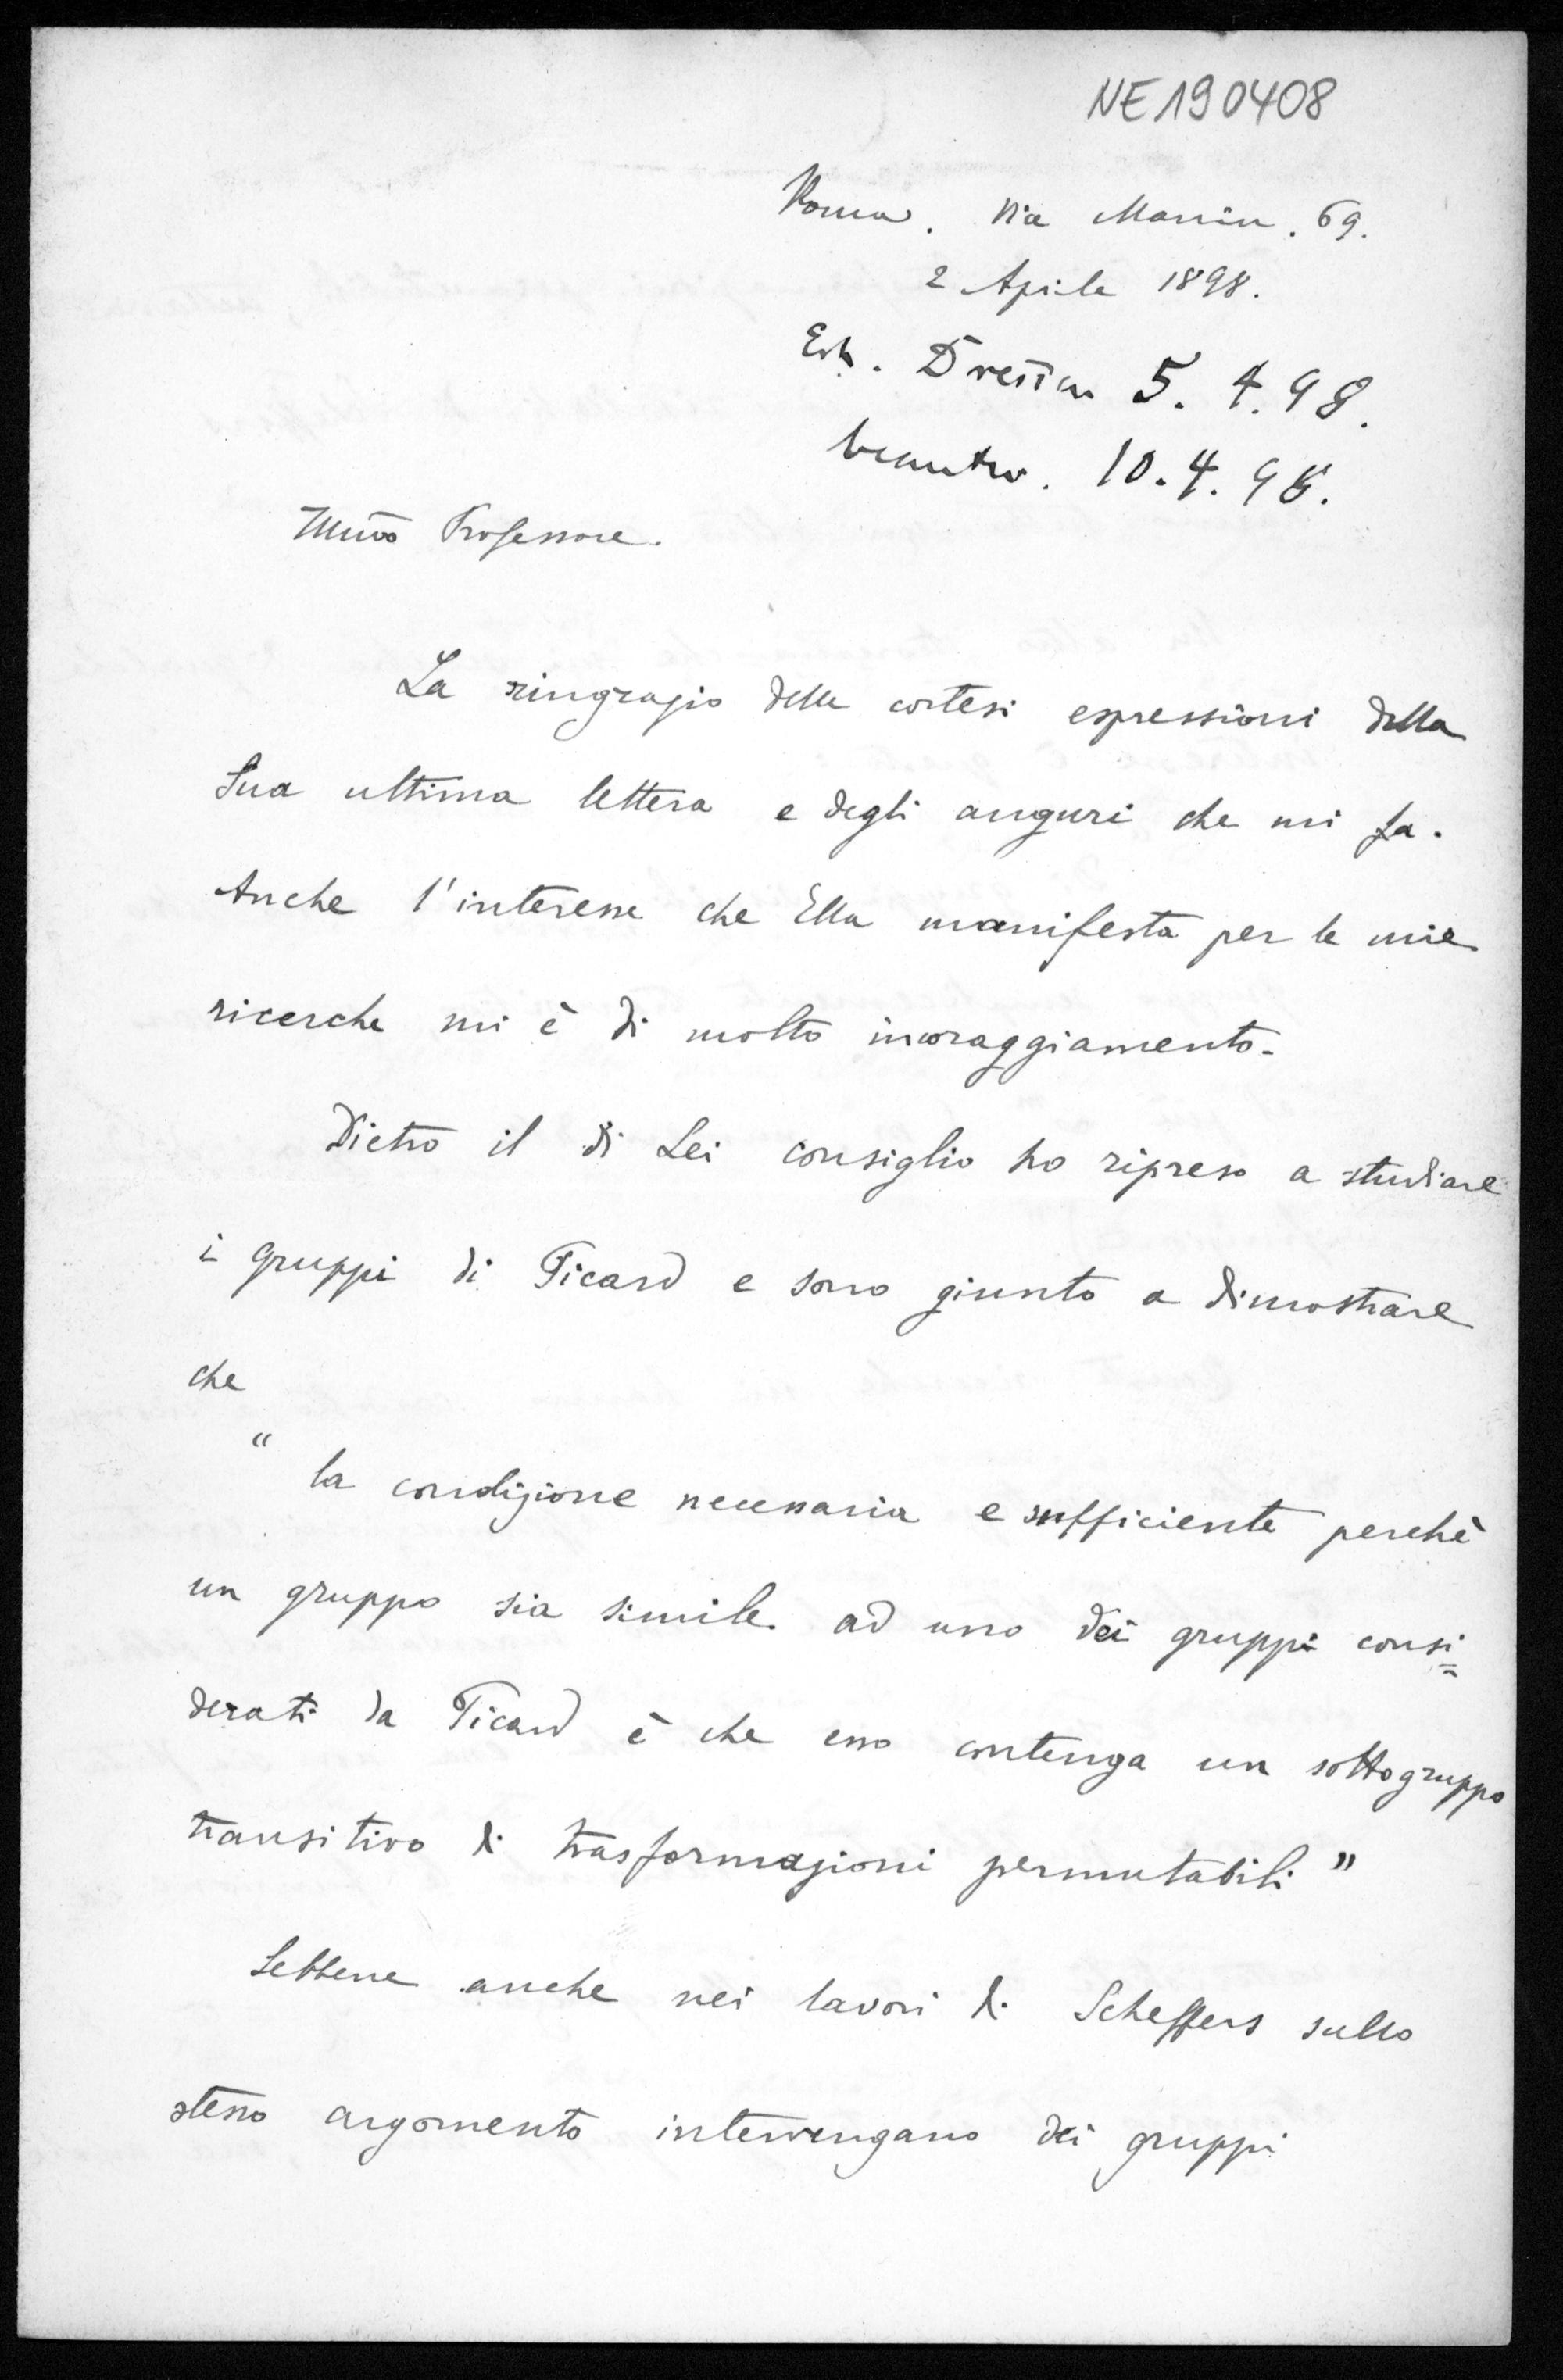 NE190408
Roma. Via Manin. 69.
2 Aprile 1898.
Erh. Dresden 5. 4. 98.
beantw. 10. 4. 98.
Illmo Professore.
La ringrazio delle cortesi espressioni della
Sua ultima lettera e degli auguri che mi fa.
Anche l'interesse che Ella manifesta per le mie
ricerche mi è di molto incoraggiamento.
Dietro il di Lei consiglio ho ripreso a studiare
i gruppi di Picard e sono giunto a dimostrare
che
" la condizione necessaria e sufficiente perchè
un gruppo sia simile ad uno dei gruppi consi=
derati da Picard è che esso contenga un sottogruppo
transitivo di trasformazioni permutabili "
Sebbene anche nei lavori di Scheffers sullo
stesso argomento intervengano dei gruppi